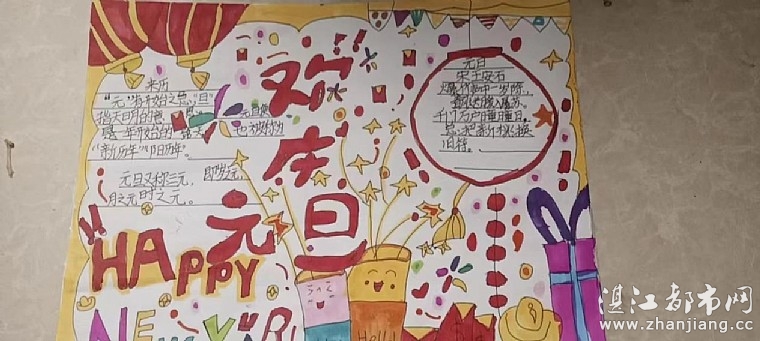 来历
"元"有开始之意,"旦"
指天日月的
是一年开始的第
"新历年""阳历年"
元旦又称三元, 即岁之元,
月之元时之元。
欢
庆
元
旦
元日
宋王安石
爆竹声中一岁除,
千门万户曈曈日,
总把新桃换
旧符。
HAPPY
NEW YEAR
Hell!
湛江都市网
www.zhanjiang.cc